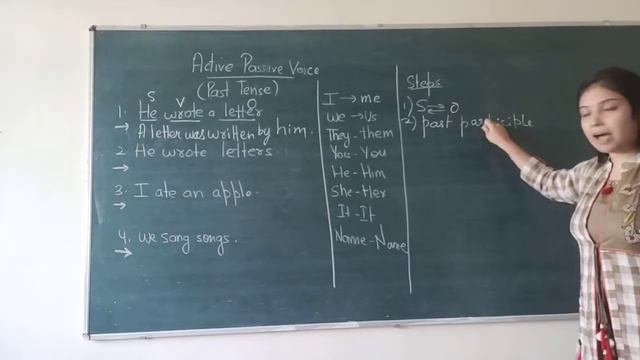 Active Passive Voice
(Past Tense)
S V O
1. He wrote a letter
→ A letter was written by him.
2. He wrote letters.
→
3. I ate an apple.
→
4. We sang songs.
→
I → me
We → Us
They - them
You - You
He - Him
She - Her
It - It
Name - Name
Steps
1) S ⇌ O
2) Past participle